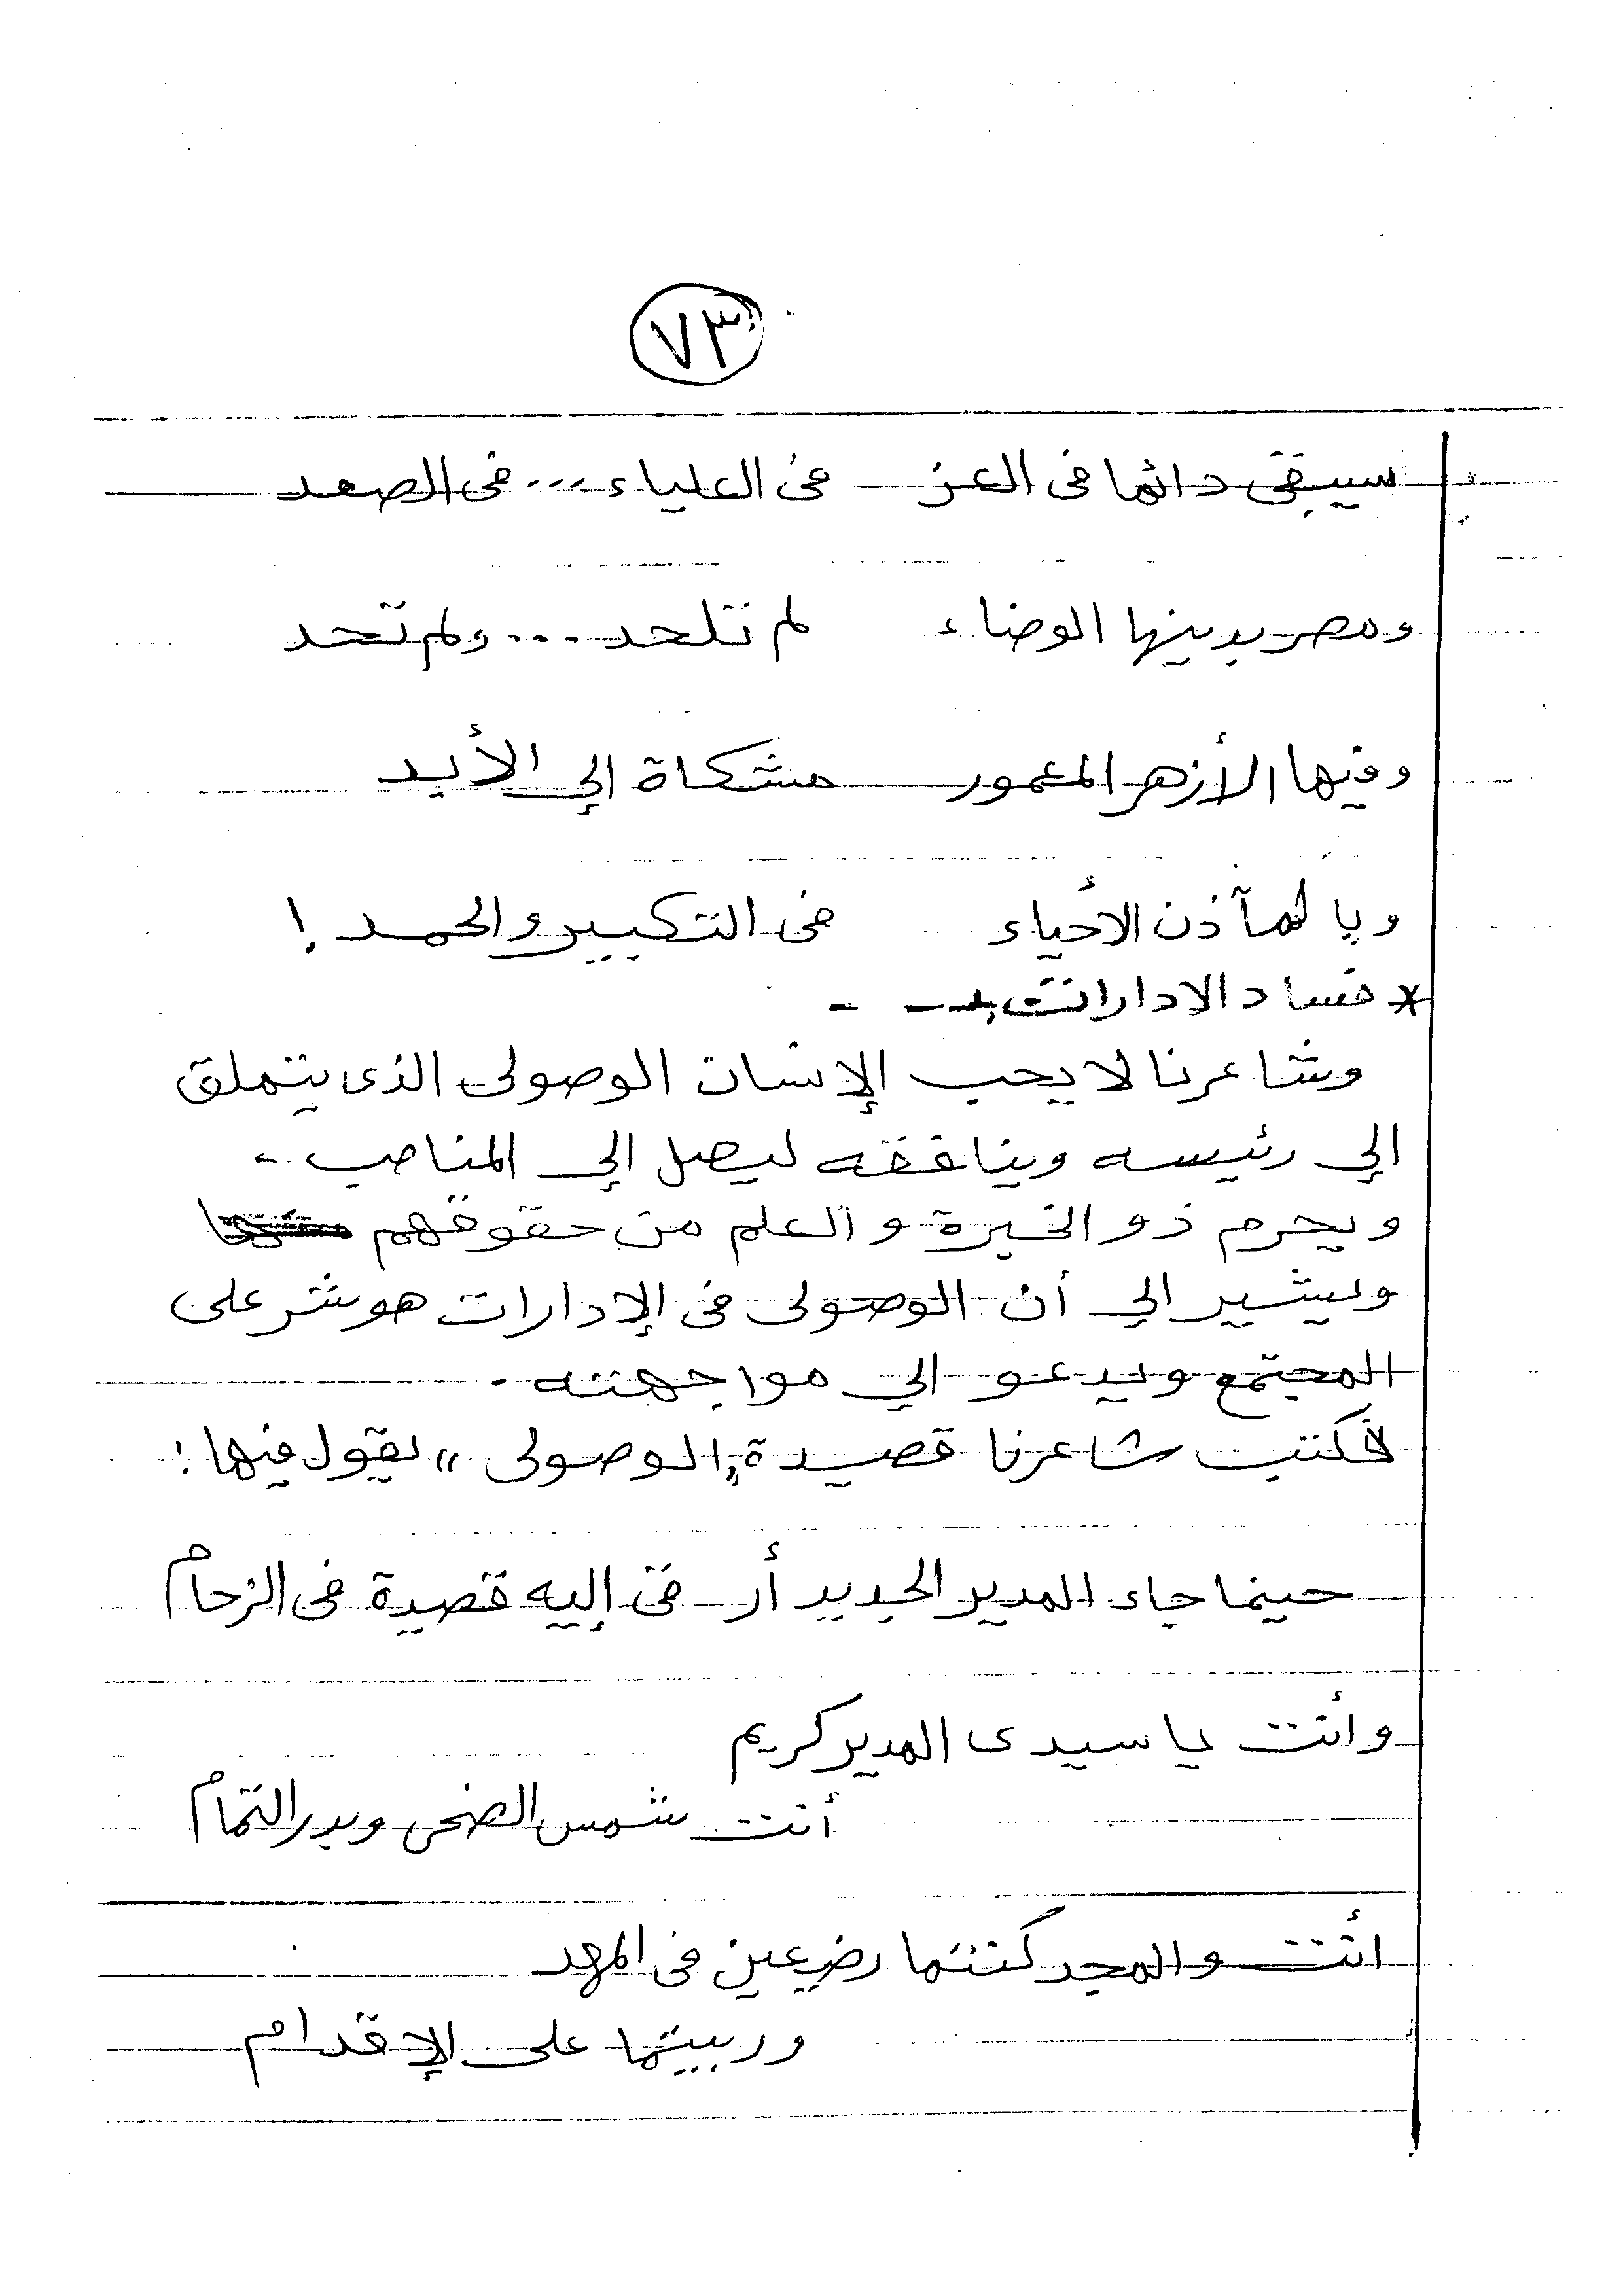 ٧٣
سيبقى دائما فى العز فى العلياء ... فى الصعد
ومصر بدينها الوضاء لم تلحد ... ولم تحد
وفيها الأزهر المعمور مشكاة إلى الأبد
وبالمآذن الأحياء فى التكبير والحمد !
* فساد الادارات :-
وشاعرنا لا يحب الإنسان الوصولى الذى يتملق
إلى رئيسه وينافقه ليصل إلى المناصب .
ويحرم ذو الخبرة والعلم من حقوقهم
ويشير الي أن الوصولى فى الإدارات هو شر على
المجتمع ويدعو الي مواجهته .
فكتب شاعرنا قصيدة "الوصولى" يقول فيها :
حينما جاء المدير الجديد أر فى إليه قصيدة فى الزحام
وأنت يا سيدى المدير كريم
أنت شمس الضحى وبدر التمام
أنت والمجد كنتما رضيعين فى المهد
وربيتما على الإقدام